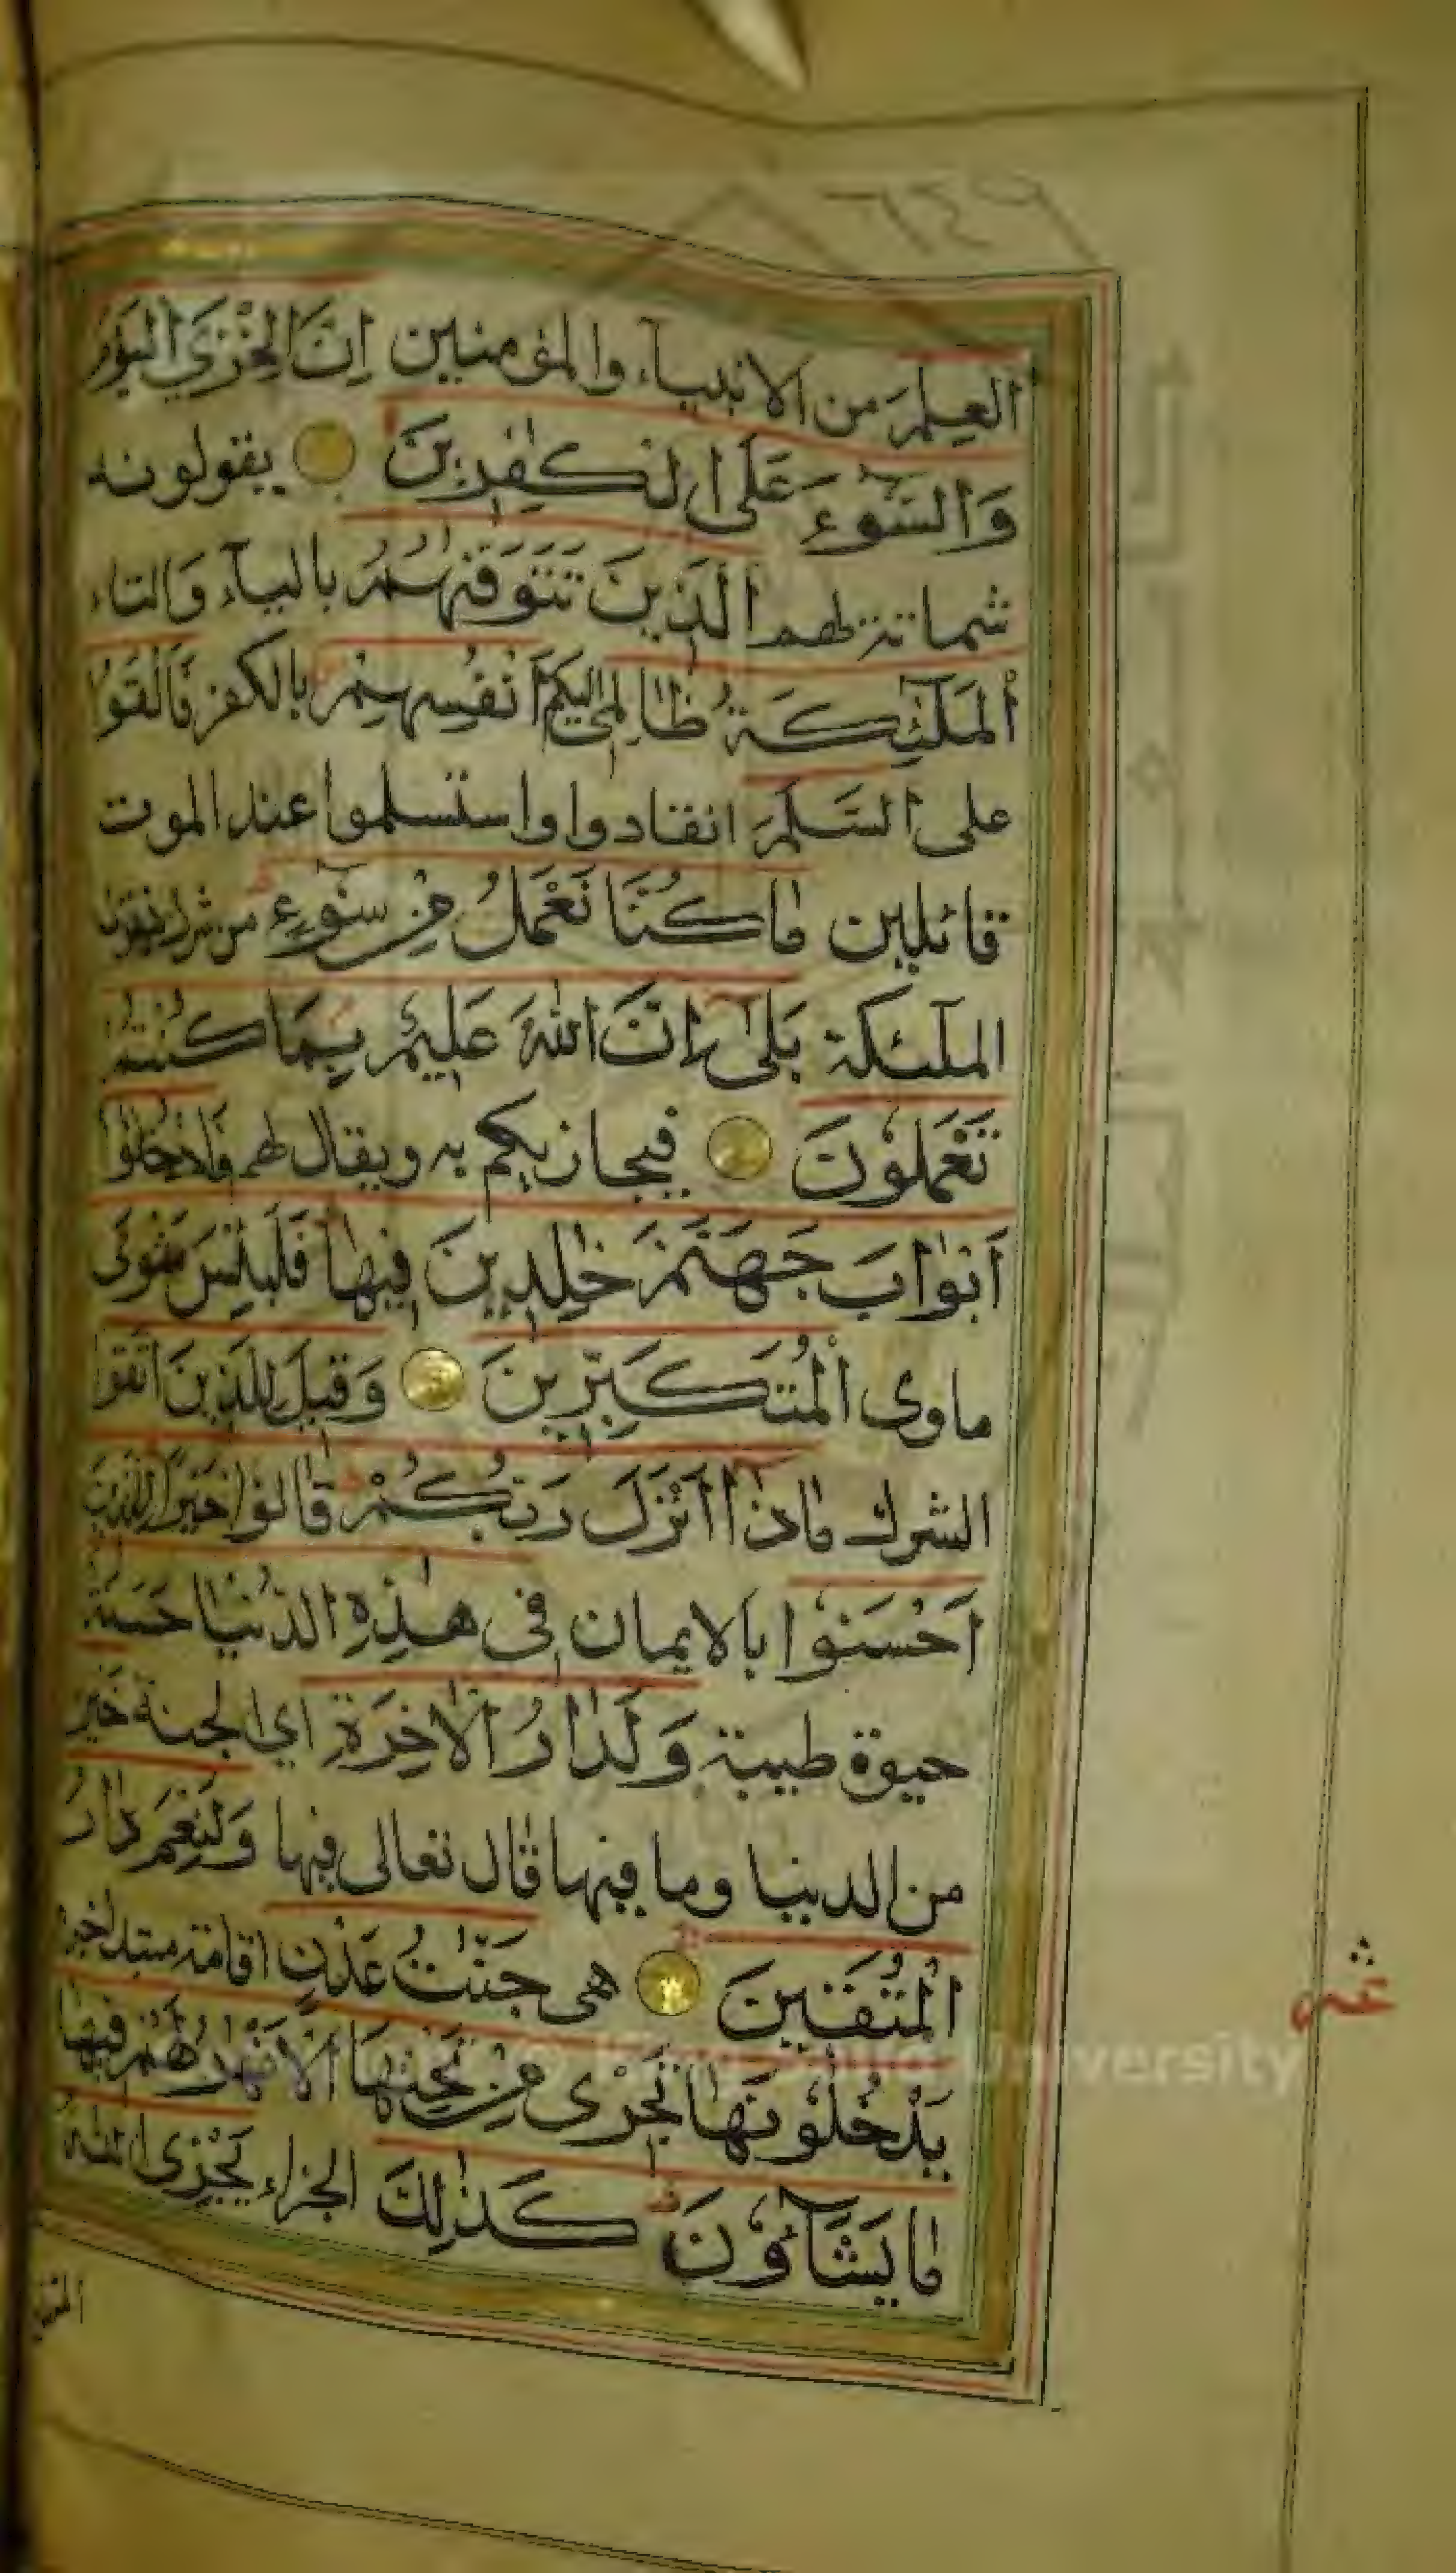 العِلمَ من الانبيآء والمؤمنين اِنَّ الخِزْيَ اليَوْمَ
وَالسُّوءَ عَلَى الكٰفِرِينَ يقولونه
شماتة بهم الَّذِينَ تَتَوَفّٰىهُمُ باليآء وَالتاء
المَلٰٓئِكَةُ ظَالِمِىٓ اَنْفُسِهِمْ بالكفر فَاَلْقَوُا
على السَّلَمَ انقادوا واستسلموا عند الموت
قائلين مَا كُنَّا نَعْمَلُ مِنْ سُوٓءٍ من شرك فيقول
الملٓئكة بَلٰىٓ اِنَّ اللّٰهَ عَلِيمٌ بِمَا كُنْتُمْ
تَعْمَلُونَ فيجازيكم به ويقال لهم فَادْخُلُوٓا
اَبْوَابَ جَهَنَّمَ خٰلِدِينَ فِيهَا فَلَبِئْسَ مَثْوَى
ماوى الْمُتَكَبِّرِينَ وَقِيلَ لِلَّذِينَ اتَّقَوْا
الشرك مَاذَآ اَنْزَلَ رَبُّكُمْ قَالُوا خَيْرًا لِلَّذِينَ
اَحْسَنُوا بالايمان فِى هٰذِهِ الدُّنْيَا حَسَنَةٌ
حيوة طيبة وَلَدَارُ الْاٰخِرَةِ اي الجنة خَيْرٌ
من الدنيا وما فيها قال تعالى فيها وَلَنِعْمَ دَارُ
الْمُتَّقِينَ هى جَنّٰتُ عَدْنٍ اقامة مبتدا خبره
يَدْخُلُونَهَا تَجْرِى مِنْ تَحْتِهَا الْاَنْهٰرُ لَهُمْ فِيهَا
مَا يَشَآؤُنَ كَذٰلِكَ الجزاء يَجْزِى اللّٰهُ
University